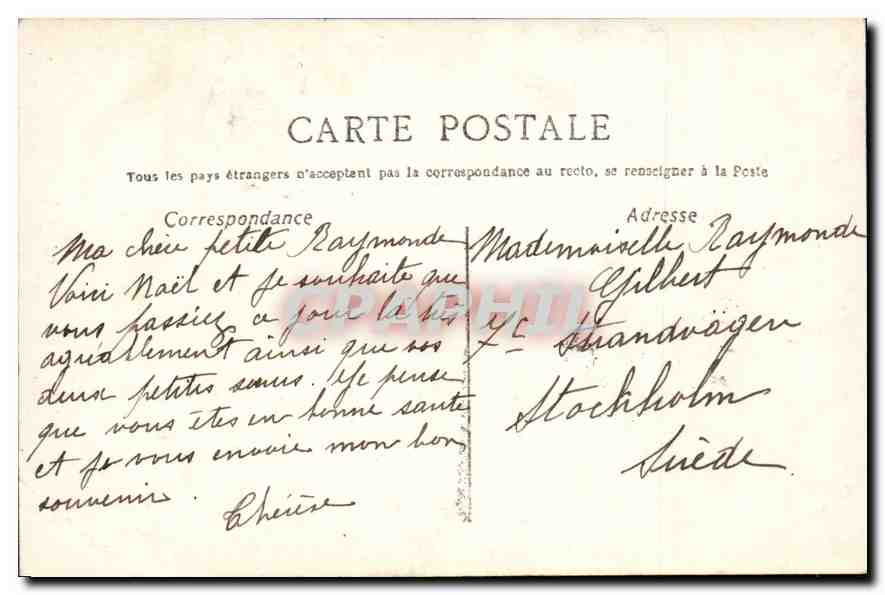 CARTE POSTALE
Tous les pays étrangers n'acceptent pas la correspondance au recto, se renseigner à la Poste
Correspondance
Ma chère petite Raymonde
Voici Noël et je souhaite que
vous passiez ce jour là très
agréablement ainsi que vos
deux petites sœurs. Je pense
que vous êtes en bonne santé
et je vous envoie mon bon
souvenir.
Thérèse
Adresse
Mademoiselle Raymonde
Gilbert
7c Strandvägen
Stockholm
Suède
CPAPHIL